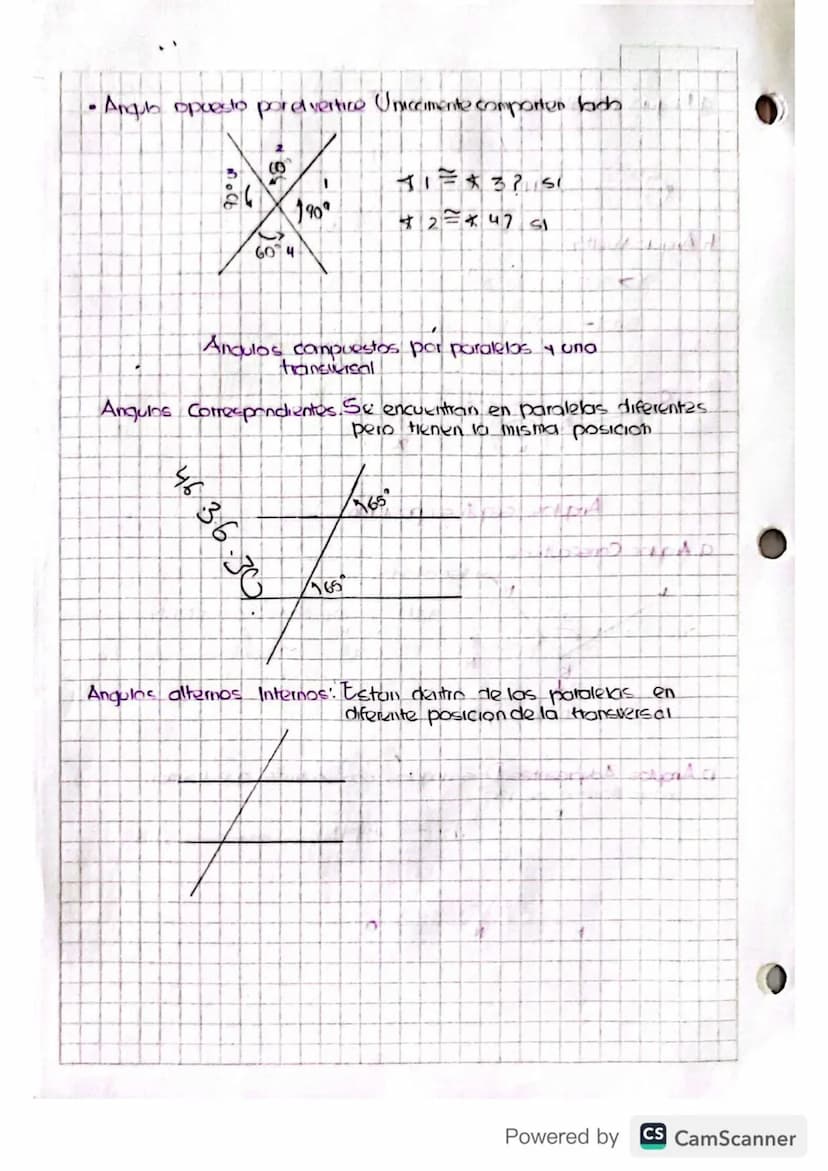 • Angulo opuesto por el vertice Unicamente comparten lado
2
3
60°
1
90°
90°
60° 4
∡ 1 ≅ ∡ 3? si
∡ 2 ≅ ∡ 4? si
Angulos compuestos por paralelas y una
transversal
Angulos Correspondientes. Se encuentran en paralelas diferentes
pero tienen la misma posicion
65°
65°
46.36.30.
Angulos alternos Internos: Estan dentro de las paralelas en
diferente posicion de la transversal
Powered by CS CamScanner